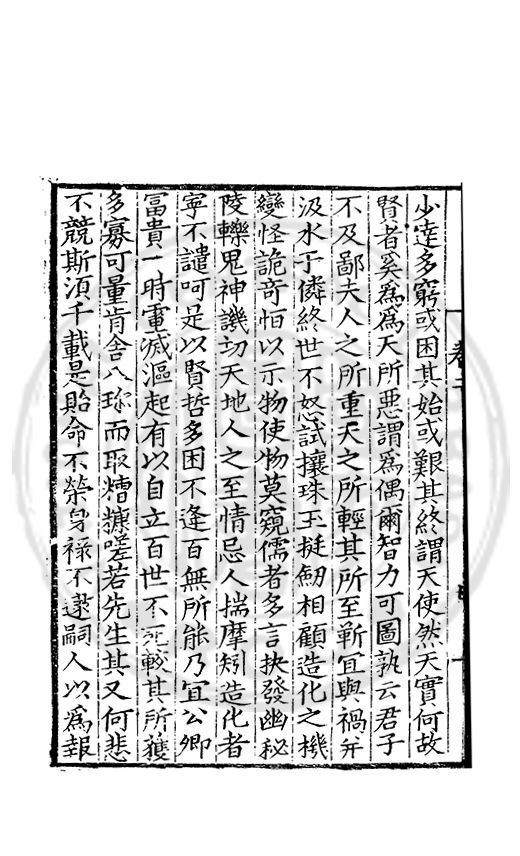 少達多窮或困其始或艱其終謂天使然天實何故
賢者奚為為天所惡謂為偶爾智力可圖孰云君子
不及鄙夫人之所重天之所輕其所至靳宜與禍并
汲水予隣終世不怒試攘珠玉挺劒相顧造化之機
變怪詭奇恒以示物使物莫窺儒者多言抉發幽秘
陵轢鬼神譏切天地人之至情忌人揣摩矧造化者
寧不譴呵是以賢哲多困不逢百無所能乃宜公卿
富貴一時電滅漚起有以自立百世不死較其所獲
多寡可量肯舍八珍而取糟糠嗟若先生其又何悲
不競斯須千載是貽命不榮身祿不逮嗣人以為報
卷二